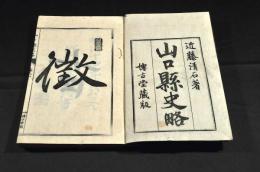 近藤清石著
山口縣史略
博古堂藏版
徴